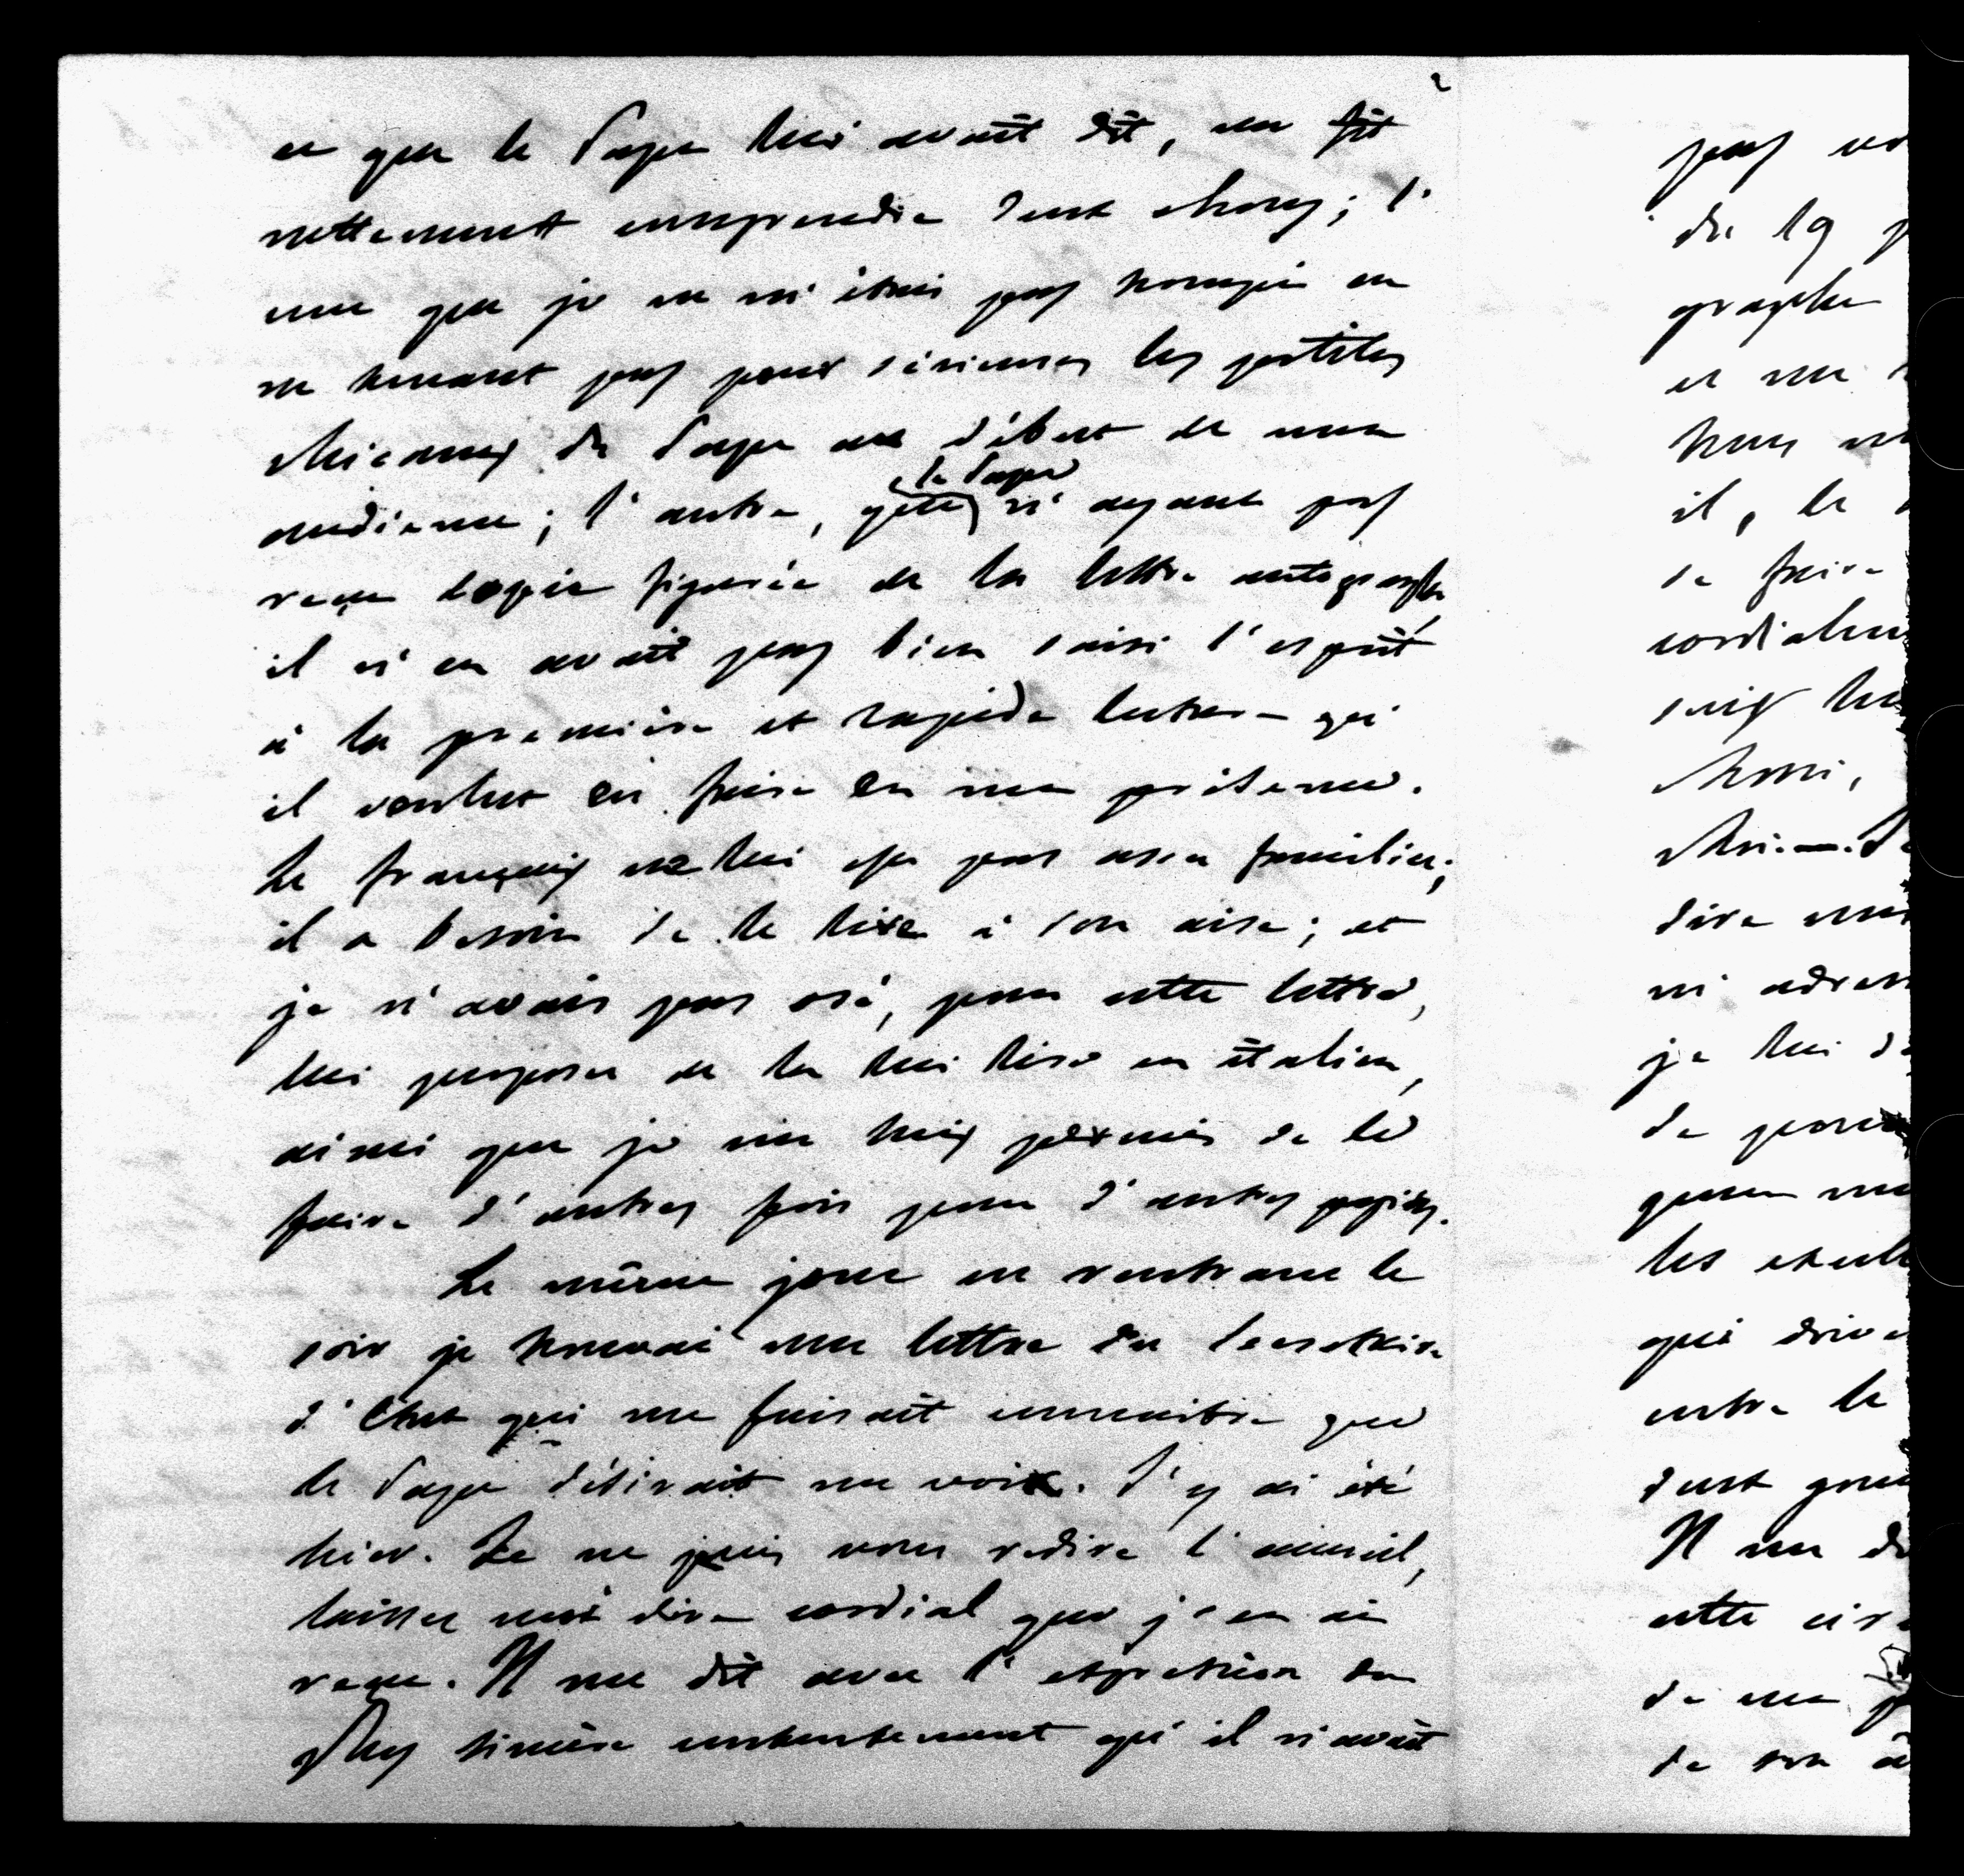 2
ce que le Pape lui avait dit, me fit
nettement comprendre deux choses; l'
une que je ne m'étais pas trompé en
ne tenant pas pour sérieuses les petites
chicanes du Pape au début de mon
audience; l'autre, que le Pape n'ayant pas
reçu copie figurée de la lettre autographe,
il n'en avait pas bien saisi l'esprit
à la première et rapide lecture qu'
il voulut en faire en ma présence.
Le français ne lui est pas assez familier;
il a besoin de le lire à son aise; et
je n'avais pas osé, pour cette lettre,
lui proposer de la lui lire en italien,
ainsi que je me suis permis de le
faire d'autres fois pour d'autres papiers.
Le même jour en rentrant le
soir je trouvai une lettre du Secrétaire
d'Etat qui me faisait connaître que
le Pape désirait me voir. J'y ai été
hier. Je ne puis vous redire l'accueil,
laissez moi dire cordial que j'en ai
reçu. Il me dit avec l'expression du
plus sincère contentement qu'il n'avait
pas
du 19
graphe
et me
il, le
de faire
cordialem
dire
m'adress
je lui d
de
les
qui
entre le
deux
Il me d
cette cir
de ma
de son